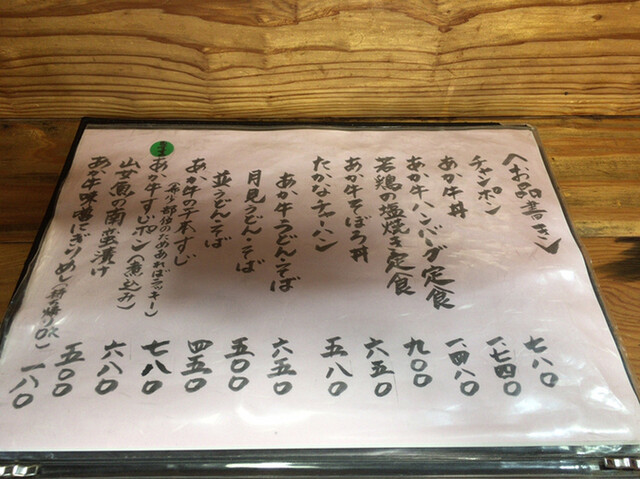 〈お品書き〉
チャンポン 七八〇
あか牛丼 一.七四〇
あか牛ハンバーグ定食 一.四八〇
若鶏の塩焼き定食 九〇〇
あか牛そぼろ丼 六五〇
たかなチャーハン 五八〇
あか牛うどん・そば 六五〇
月見うどん・そば 五〇〇
並うどん・そば 四五〇
あか牛の千本すじ 七八〇
(希少部位のためあればラッキー)
あか牛すいポン(煮込み) 六八〇
山女魚の南蛮漬け 五〇〇
あか牛味噌にぎりめし(持ち帰りOK) 一八〇